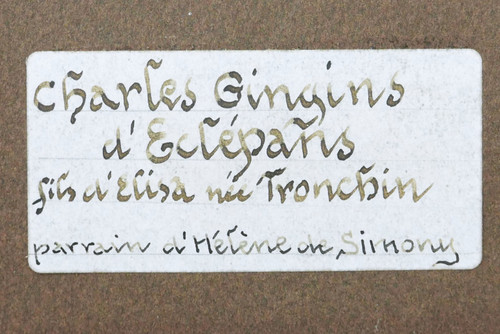 Charles Gingins
d'Eclépañs
fils d'Elisa née Tronchin
parrain d'Hélène de Simony